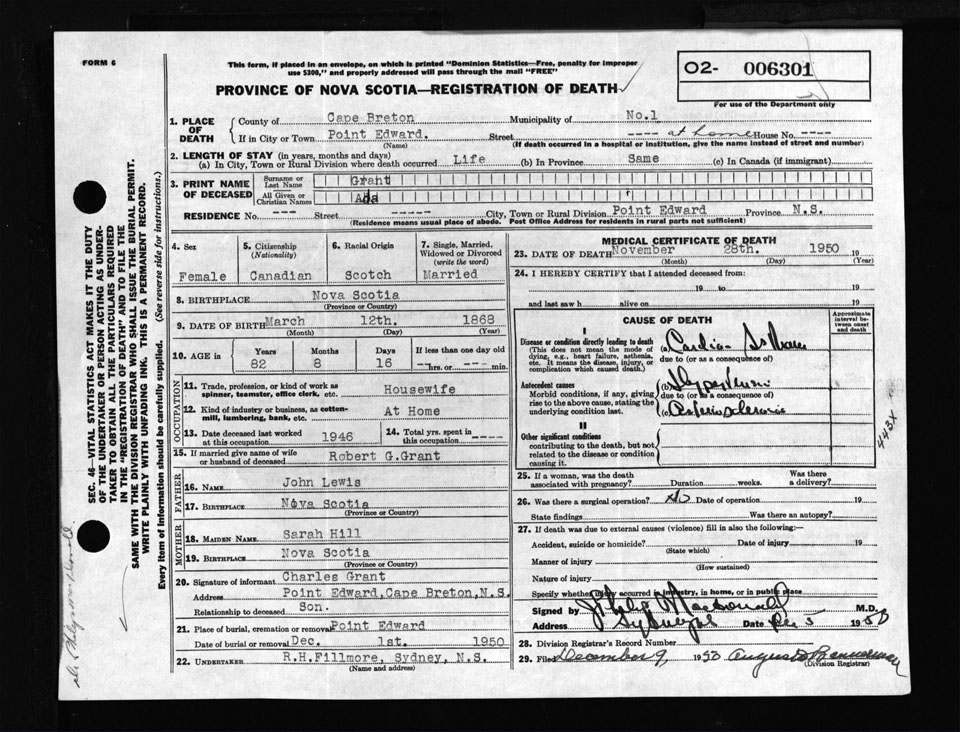 FORM 6
This form, if placed in an envelope, on which is printed "Dominion Statistics—Free, penalty for improper
use $300," and properly addressed will pass through the mail "FREE"
O2- 006301
For use of the Department only
PROVINCE OF NOVA SCOTIA—REGISTRATION OF DEATH
1. PLACE OF DEATH
County of Cape Breton Municipality of No.1
If in City or Town Point Edward. Street ---- at home House No. ----
(Name) (If death occurred in a hospital or institution, give the name instead of street and number)
2. LENGTH OF STAY (in years, months and days)
(a) In City, Town or Rural Division where death occurred Life (b) In Province Same (c) In Canada (if immigrant)
3. PRINT NAME OF DECEASED
Surname or Last Name Grant
All Given or Christian Names Ada
RESIDENCE No. --- Street ----- City, Town or Rural Division Point Edward Province N.S.
(Residence means usual place of abode. Post Office Address for residents in rural parts not sufficient)
4. Sex Female
5. Citizenship (Nationality) Canadian
6. Racial Origin Scotch
7. Single, Married, Widowed or Divorced (write the word) Married
8. BIRTHPLACE Nova Scotia
(Province or Country)
9. DATE OF BIRTH March 12th. 1868
(Month) (Day) (Year)
10. AGE in Years Months Days If less than one day old
82 8 16 --- hrs. or --- min.
OCCUPATION
11. Trade, profession, or kind of work as spinner, teamster, office clerk, etc. Housewife
12. Kind of industry or business, as cotton-mill, lumbering, bank, etc. At Home
13. Date deceased last worked at this occupation 1946
14. Total yrs. spent in this occupation ----
15. If married give name of wife or husband of deceased Robert G.Grant
FATHER
16. NAME John Lewis
17. BIRTHPLACE Nova Scotia
(Province or Country)
MOTHER
18. MAIDEN NAME Sarah Hill
19. BIRTHPLACE Nova Scotia
(Province or Country)
20. Signature of informant Charles Grant
Address Point Edward,Cape Breton,N.S.
Relationship to deceased Son.
21. Place of burial, cremation or removal Point Edward
Date of burial or removal Dec. 1st. 1950
22. UNDERTAKER R.H.Fillmore, Sydney, N.S.
(Name and address)
MEDICAL CERTIFICATE OF DEATH
23. DATE OF DEATH November 28th. 1950 19
(Month) (Day) (Year)
24. I HEREBY CERTIFY that I attended deceased from:
19 to 19
and last saw h alive on 19
CAUSE OF DEATH
Approximate interval between onset and death
I
Disease or condition directly leading to death
(This does not mean the mode of dying, e.g., heart failure, asthenia, etc. It means the disease, injury, or complication which caused death.)
(a) Cardiac
due to (or as a consequence of)
Antecedent causes
Morbid conditions, if any, giving rise to the above cause, stating the underlying condition last.
(b) Hypertension
due to (or as a consequence of)
(c) Arteriosclerosis
II
Other significant conditions
contributing to the death, but not related to the disease or condition causing it.
443X
25. If a woman, was the death associated with pregnancy? Duration weeks. Was there a delivery?
26. Was there a surgical operation? No Date of operation 19
State findings Was there an autopsy?
27. If death was due to external causes (violence) fill in also the following:—
Accident, suicide or homicide? Date of injury 19
(State which)
Manner of injury
(How sustained)
Nature of injury
Specify whether injury occurred in industry, in home, or in public place
Signed by Macdonald M.D.
Address Sydney Date Dec 5 1950
28. Division Registrar's Record Number
29. Filed December 9, 1950 Augusta
(Division Registrar)
SEC. 46—VITAL STATISTICS ACT MAKES IT THE DUTY
OF THE UNDERTAKER OR PERSON ACTING AS UNDER-
TAKER TO OBTAIN ALL THE PARTICULARS REQUIRED
IN THE "REGISTRATION OF DEATH" AND TO FILE THE
SAME WITH THE DIVISION REGISTRAR WHO SHALL ISSUE THE BURIAL PERMIT.
WRITE PLAINLY WITH UNFADING INK. THIS IS A PERMANENT RECORD.
Every item of information should be carefully supplied. (See reverse side for instructions.)